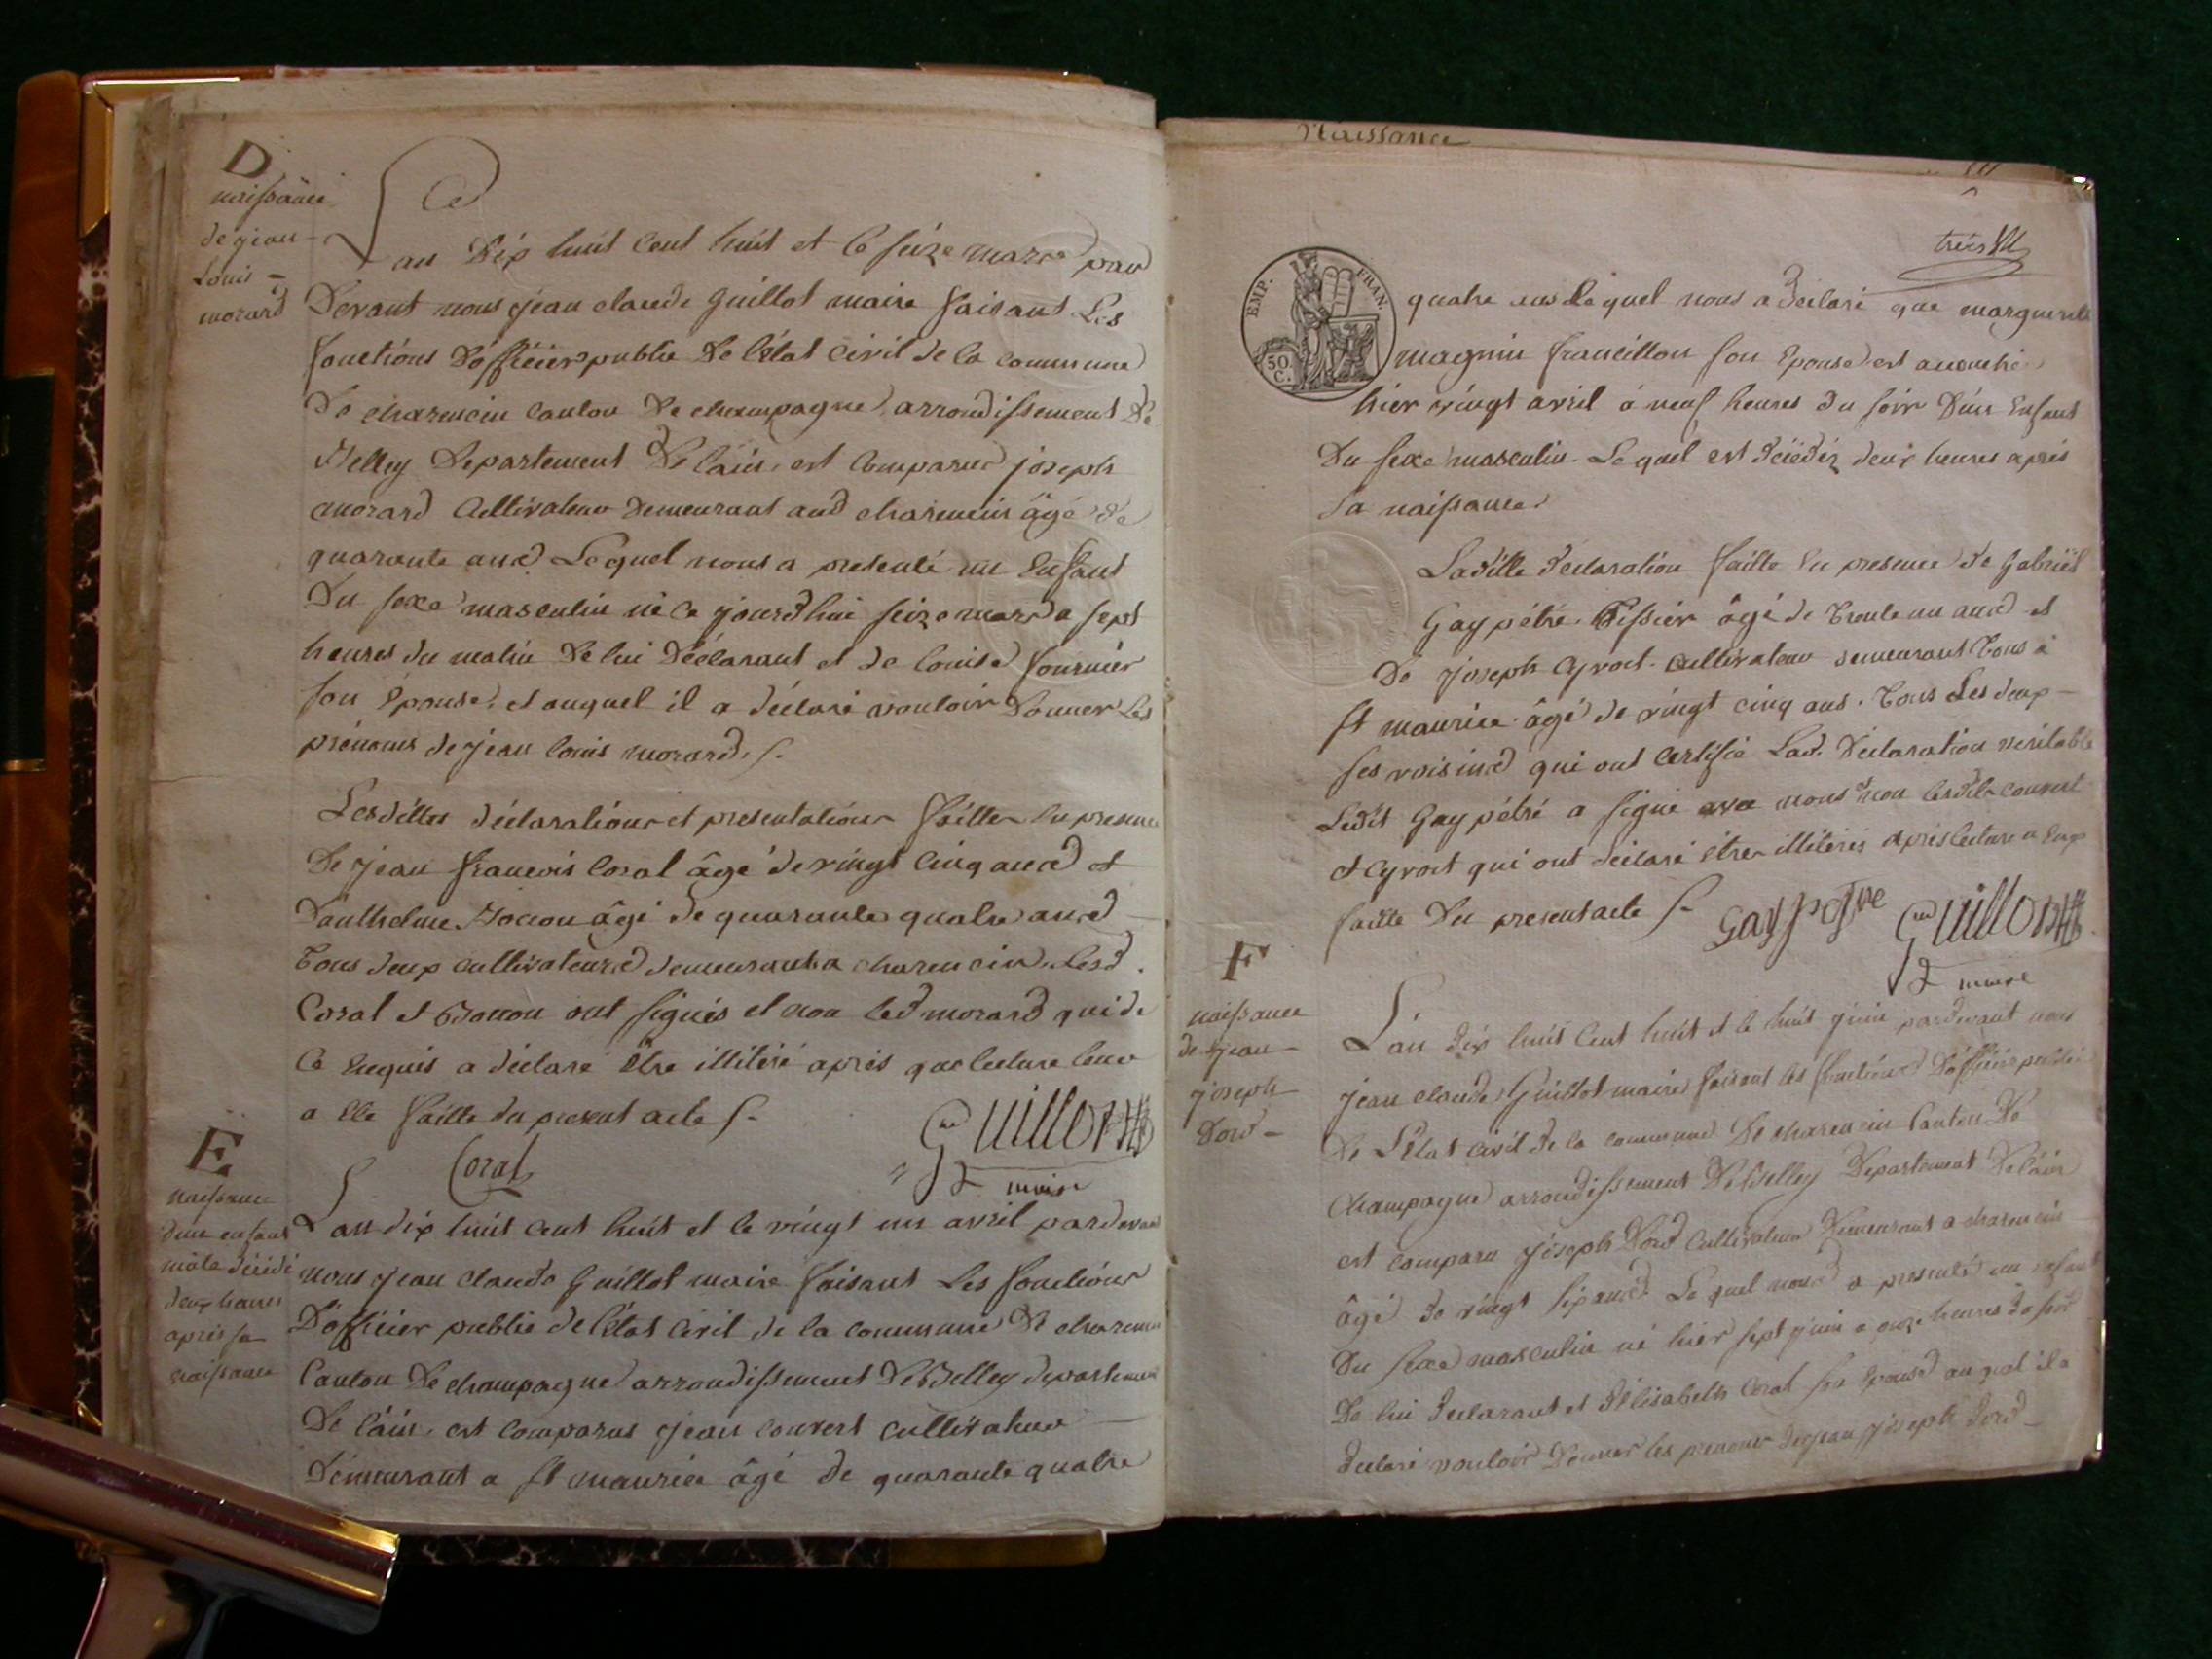 D
naissance
de jean
Louis
morard
L'an Dix huit Cent huit et le seize mars par
Devant nous jean claude Guillot maire faisant Les
fonctions D'officier public De l'état Civil de la commune
De charencin canton De champagne arrondissement De
Belley Departement De l'ain, est Comparu joseph
morard Cultivateur demeurant aud charencin âgé de
quarante ans Lequel nous a presenté un Enfant
Du sexe masculin né Ce jourd'hui seize mars a sept
heures du matin De lui Déclarant et de Louise fournier
son Epouse, et auquel il a déclaré vouloir Donner Les
prénoms de jean Louis morard
Lesdittes déclaration et presentation faitte En presence
De jean françois Coral âgé de vingt Cinq ans et
D'anthelme Bonon âgé de quarante quatre ans
Tous deux cultivateurs demeurant a charencin. Lesd.
Coral et Bonon ont signés et non led morard qui de
Ce Enquis a déclaré Etre illitéré après que lecture leur
a Ete faitte du present acte
Coral
Guillot
maire
E
naissance
d'un enfant
mâle décédé
deux heures
après sa
naissance
L'an dix huit Cent huit et le vingt un avril pardevant
nous jean Claude Guillot maire faisant Les fonctions
D'officier public de l'état Civil de la commune De charencin
Canton De champagne arrondissement De Belley departement
De l'ain, est comparus jean convert cultivateur
Demeurant a St maurice âgé de quarante quatre
Naissance
trois
EMP. FRAN.
50 C.
quatre ans Lequel nous a Déclaré que marguerite
magnin francillon son Epouse est accouchée
hier vingt avril à neuf heures du soir D'un Enfant
Du sexe masculin. Lequel est décédé deux heures après
sa naissance
Laditte déclaration faitte En presence de Gabriel
Gaypétre Tissier âgé de Trente un ans et
De joseph Cyvoct cultivateur demeurant Tous à
St maurice âgé de vingt cinq ans. Tous Les deux
ses voisins qui ont certifié Lad. Déclaration véritable
Ledit Gaypétre a signé avec nous non lesdits convert
et Cyvoct qui ont déclaré être illitérés après lecture a Eux
faitte Du present acte
Gaypetre
Guillot
maire
F
naissance
de jean
joseph
Dord
L'an dix huit Cent huit et le huit juin pardevant nous
jean claude Guillot maire faisant les fonctions D'officier public
De L'Etat civil de la commune De charencin Canton De
Champagne arrondissement De Belley Departement De l'ain
est comparu joseph Dord Cultivateur Demeurant a charencin
âgé de vingt six ans. Lequel nous a presenté un enfant
Du sexe masculin né hier sept juin a onze heures du soir
De lui declarant et d'Elisabeth Coral son Epouse auquel il a
declaré vouloir Donner les prenoms de jean joseph Dord